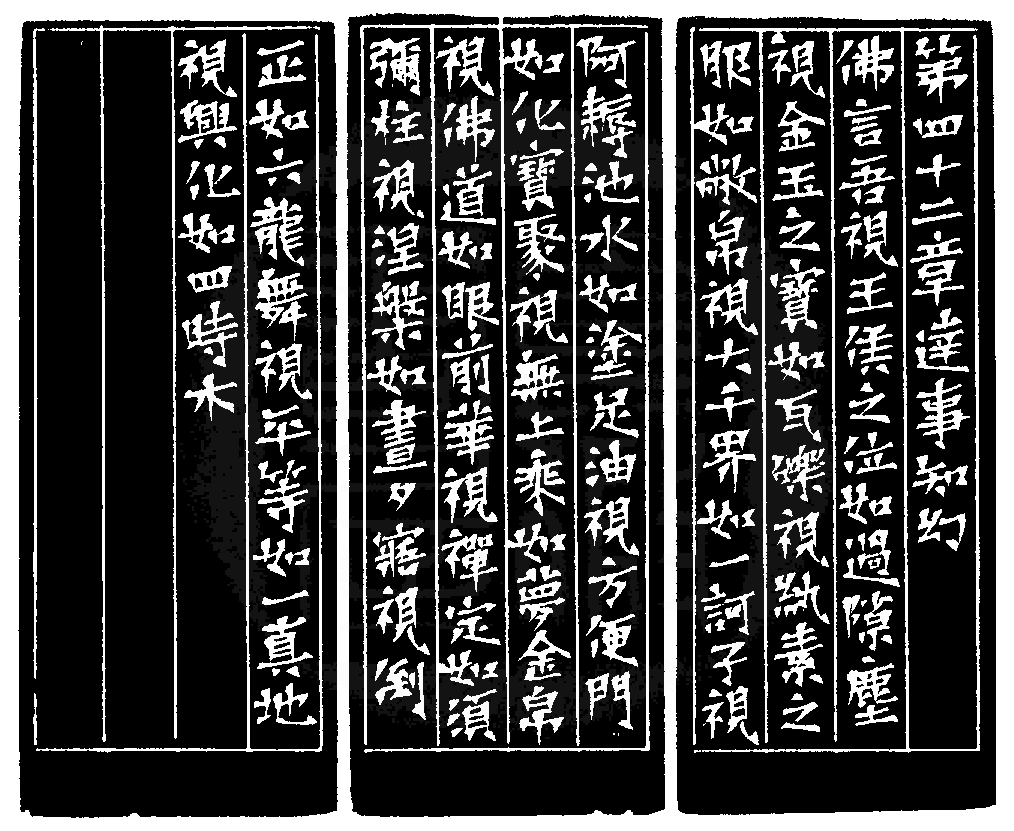 第四十二章達事知幻
佛言吾視王侯之位如過隙塵
視金玉之寶如瓦礫視紈素之
服如敝帛視大千界如一訶子視
阿耨池水如塗足油視方便門
如化寶聚視無上乘如夢金帛
視佛道如眼前華視禪定如須
彌柱視涅槃如晝夕寤視倒
正如六龍舞視平等如一真地
視興化如四時木